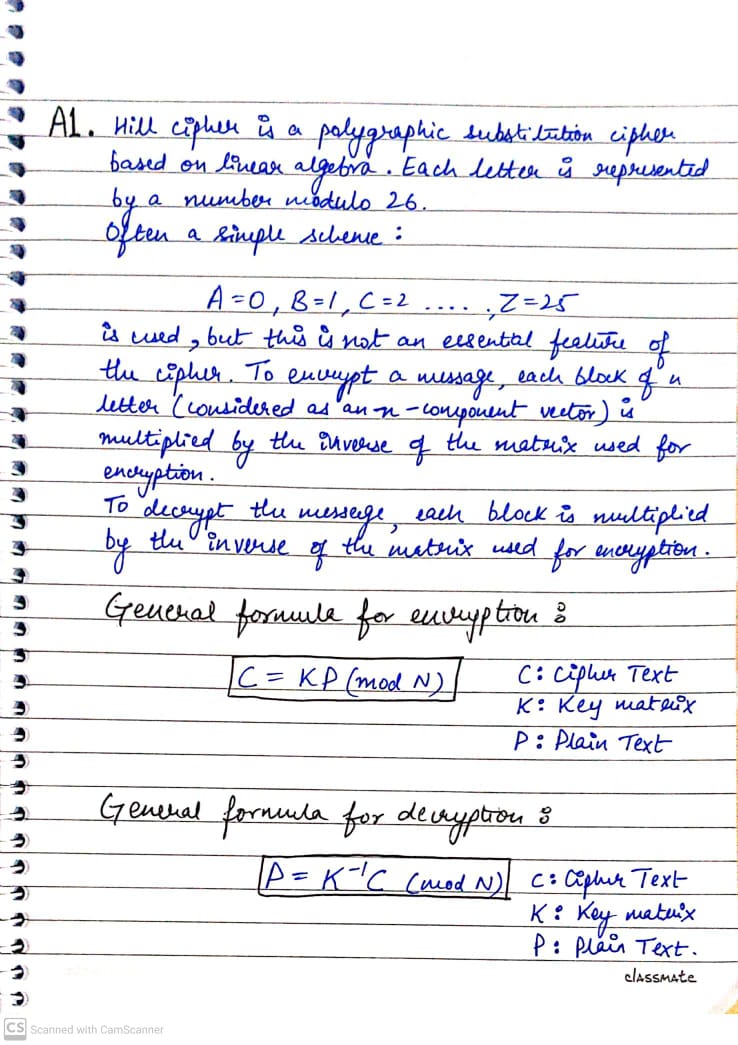 A1. Hill cipher is a polygraphic substitution cipher
based on linear algebra. Each letter is represented
by a number modulo 26.
Often a simple scheme :
A=0, B=1, C=2 .... , Z=25
is used, but this is not an essential feature of
the cipher. To encrypt a message, each block of n
letter (considered as an n-component vector) is
multiplied by the inverse of the matrix used for
encryption.
To decrypt the message, each block is multiplied
by the inverse of the matrix used for encryption.
General formula for encryption :
C = KP (mod N)
C: Cipher Text
K: Key matrix
P: Plain Text
General formula for decryption :
P = K⁻¹C (mod N)
C: Cipher Text
K: Key matrix
P: Plain Text.
classmate
CS Scanned with CamScanner